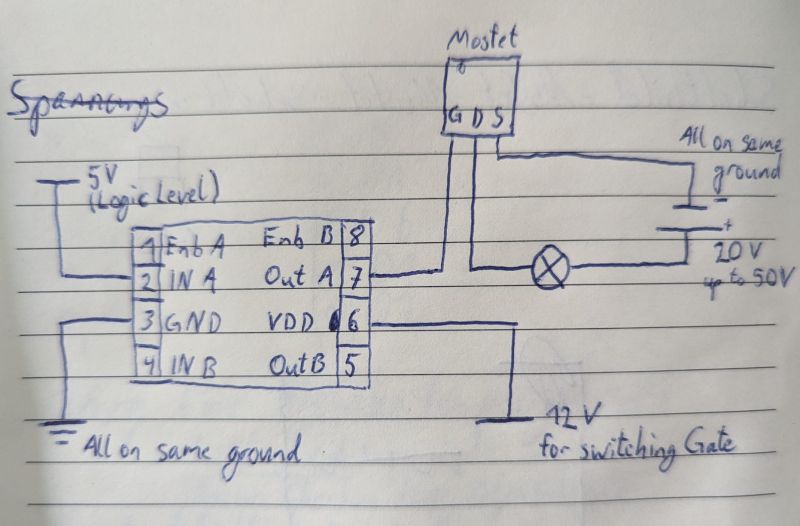 Mosfet
G D S
Spannungs
All on same
ground
5V
(Logic Level)
-
+
20V
up to 50V
1 Enb A Enb B 8
2 IN A Out A 7
3 GND VDD 6
4 IN B Out B 5
12 V
for switching Gate
All on same ground